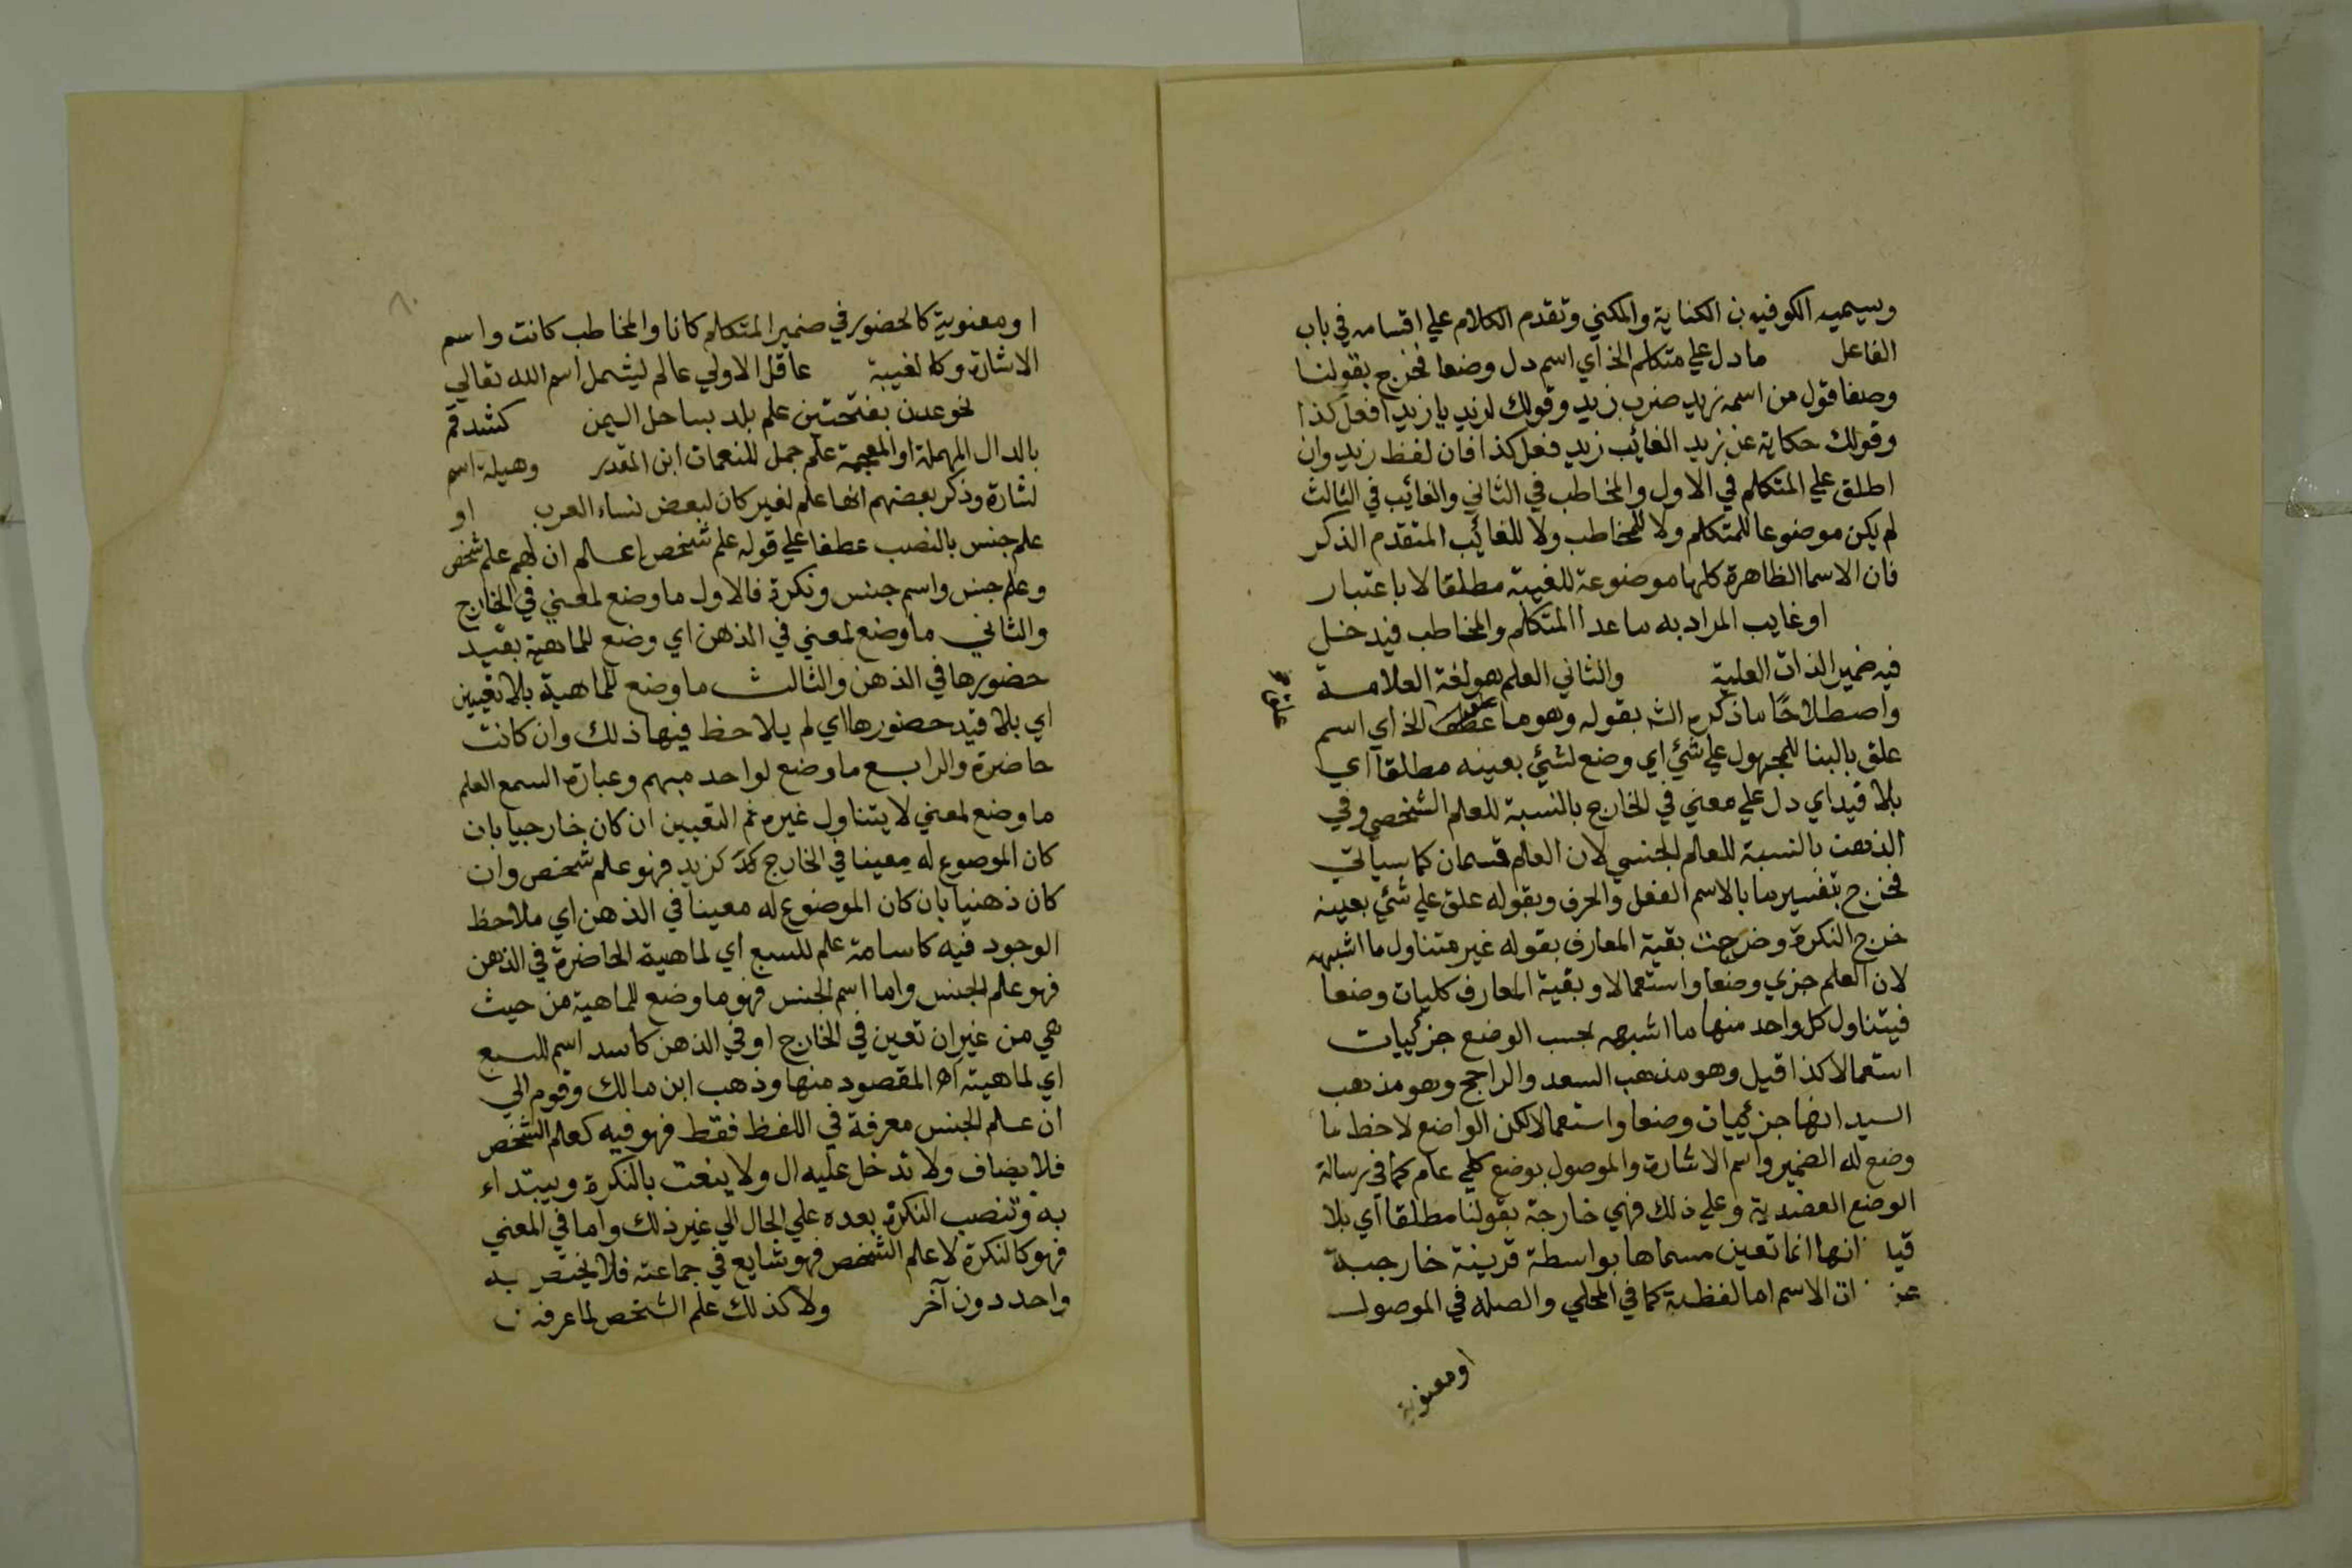 ويسميه الكوفيون الكناية والمكني وتقدم الكلام علي اقسامه في باب
الفاعل ما دل علي متكلم الخ اي اسم دل وضعا فخرج بقولنا
وضعا قول من اسمه زيد ضرب زيد وقولك لزيد يا زيد افعل كذا
وقولك حكاية عن زيد الغائب زيد فعل كذا فان لفظ زيد وان
اطلق علي المتكلم في الاول والمخاطب في الثاني والغائب في الثالث
لم يكن موضوعا للمتكلم ولا للمخاطب ولا للغائب المتقدم الذكر
فان الاسما الظاهرة كلها موضوعة للغيبة مطلقا لا باعتبار
او غايب المراد به ما عدا المتكلم والمخاطب فيدخل
فيه ضمير الذات العلية والثاني العلم هو لغة العلامة
واصطلاحا ما ذكره الش بقوله وهو ما علق الخ اي اسم
علق بالبنا للمجهول علي شئ اي وضع لشئ بعينه مطلقا اي
بلا قيد اي دل علي معني في الخارج بالنسبة للعلم الشخصي وفي
الذهن بالنسبة للعلم الجنسي لان العلم قسمان كما سيأتي
فخرج بتفسير ما بالاسم الفعل والحرف وبقوله علق علي شئ بعينه
خرج النكرة وخرجت بقية المعارف بقوله غير متناول ما اشبهه
لان العلم جزي وضعا واستعمالا وبقية المعارف كليات وضعا
فيتناول كل واحد منها ما اشبهه بحسب الوضع جزئيات
استعمالا كذا قيل وهو مذهب السعد والراجح وهو مذهب
السيد انها جزئيات وضعا واستعمالا لكن الواضع لاحظ ما
وضع له الضمير واسم الاشارة والموصول بوضع كلي عام كما في رسالة
الوضع العضدية وعلي ذلك فهي خارجة بقولنا مطلقا اي بلا
انها انما تعين مسماها بواسطة قرينة خارجة
الاسم اما لفظية كما في المحلي والصله في الموصول
او معنوية
او معنوية كالحضور في ضمير المتكلم كانا والمخاطب كانت واسم
الاشارة وكالغيبة عاقل الاولي عالم ليشمل اسم الله تعالي
نحو عدن بفتحتين علم بلد بساحل اليمن كشدقم
بالدال المهملة او المعجمة علم جمل للنعمان ابن المنذر وهيلة اسم
لشارة وذكر بعضهم انها علم لغير كان لبعض نساء العرب او
علم جنس بالنصب عطفا علي قوله علم شخص اعلم ان لهم علم شخص
وعلم جنس واسم جنس ونكرة فالاول ما وضع لمعني في الخارج
والثاني ما وضع لمعني في الذهن اي وضع للماهية بقيد
حضورها في الذهن والثالث ما وضع للماهية بلا تعيين
اي بلا قيد حضورها اي لم يلاحظ فيها ذلك وان كانت
حاضرة والرابع ما وضع لواحد مبهم وعبارة السمع العلم
ما وضع لمعني لا يتناول غيره ثم التعيين ان كان خارجيا بان
كان الموضوع له معينا في الخارج كزيد فهو علم شخص وان
كان ذهنيا بان كان الموضوع له معينا في الذهن اي ملاحظ
الوجود فيه كاسامة علم للسبع اي لماهية الحاضرة في الذهن
فهو علم الجنس واما اسم الجنس فهو ما وضع للماهية من حيث
هي من غير ان تعين في الخارج او في الذهن كاسد اسم للسبع
اي لماهيته اه المقصود منها وذهب ابن مالك وقوم الي
ان علم الجنس معرفة في اللفظ فقط فهو فيه كعلم الشخص
فلا يضاف ولا تدخل عليه ال ولا ينعت بالنكرة ويبتداء
به وتنصب النكرة بعده علي الحال الي غير ذلك واما في المعني
فهو كالنكرة لا علم الشخص فهو شايع في جماعته فلا يختص به
واحد دون آخر ولا كذلك علم الشخص لما عرفت